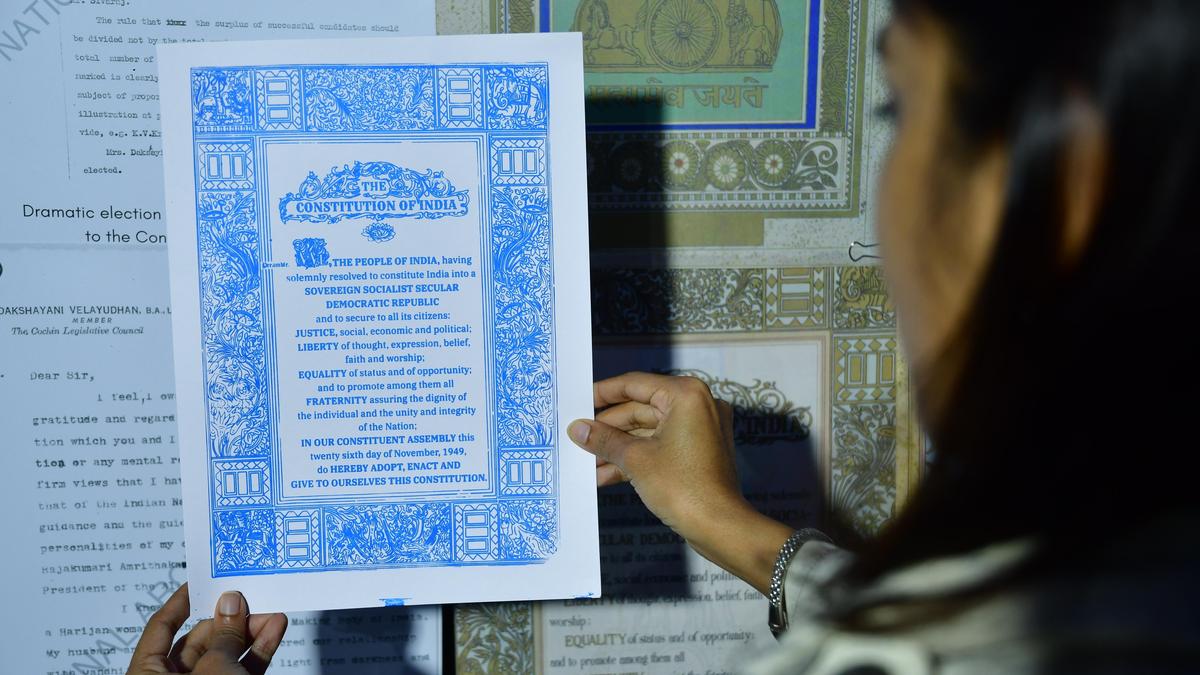 The rule that the surplus of successful candidates should
be divided not by the total
total number of
marked is clearly
subject of
illustration at
vide, e.g.
Mrs.
elected.
Dramatic election
to the Con
DAKSHAYANI VELAYUDHAN, B.A., L
MEMBER
The Cochin Legislative Council
Dear Sir,
I feel, I ow
gratitude and regard
tion which you and I
tion or any mental re
firm views that I ha
that of the Indian Na
guidance and the guid
personalities of my
Rajakumari Amrithaka
President of the Al
I know
a Harijan woma
My husband an
THE
CONSTITUTION OF INDIA
Preamble.
WE, THE PEOPLE OF INDIA, having
solemnly resolved to constitute India into a
SOVEREIGN SOCIALIST SECULAR
DEMOCRATIC REPUBLIC
and to secure to all its citizens:
JUSTICE, social, economic and political;
LIBERTY of thought, expression, belief,
faith and worship;
EQUALITY of status and of opportunity;
and to promote among them all
FRATERNITY assuring the dignity of
the individual and the unity and integrity
of the Nation;
IN OUR CONSTITUENT ASSEMBLY this
twenty sixth day of November, 1949,
do HEREBY ADOPT, ENACT AND
GIVE TO OURSELVES THIS CONSTITUTION.
our relationship
light from darkness and
सत्यमेव जयते
INDIA
social economic and
LIBERTY of thought, expression, belief, faith
worship;
EQUALITY of status and of opportunity;
and to promote among them all